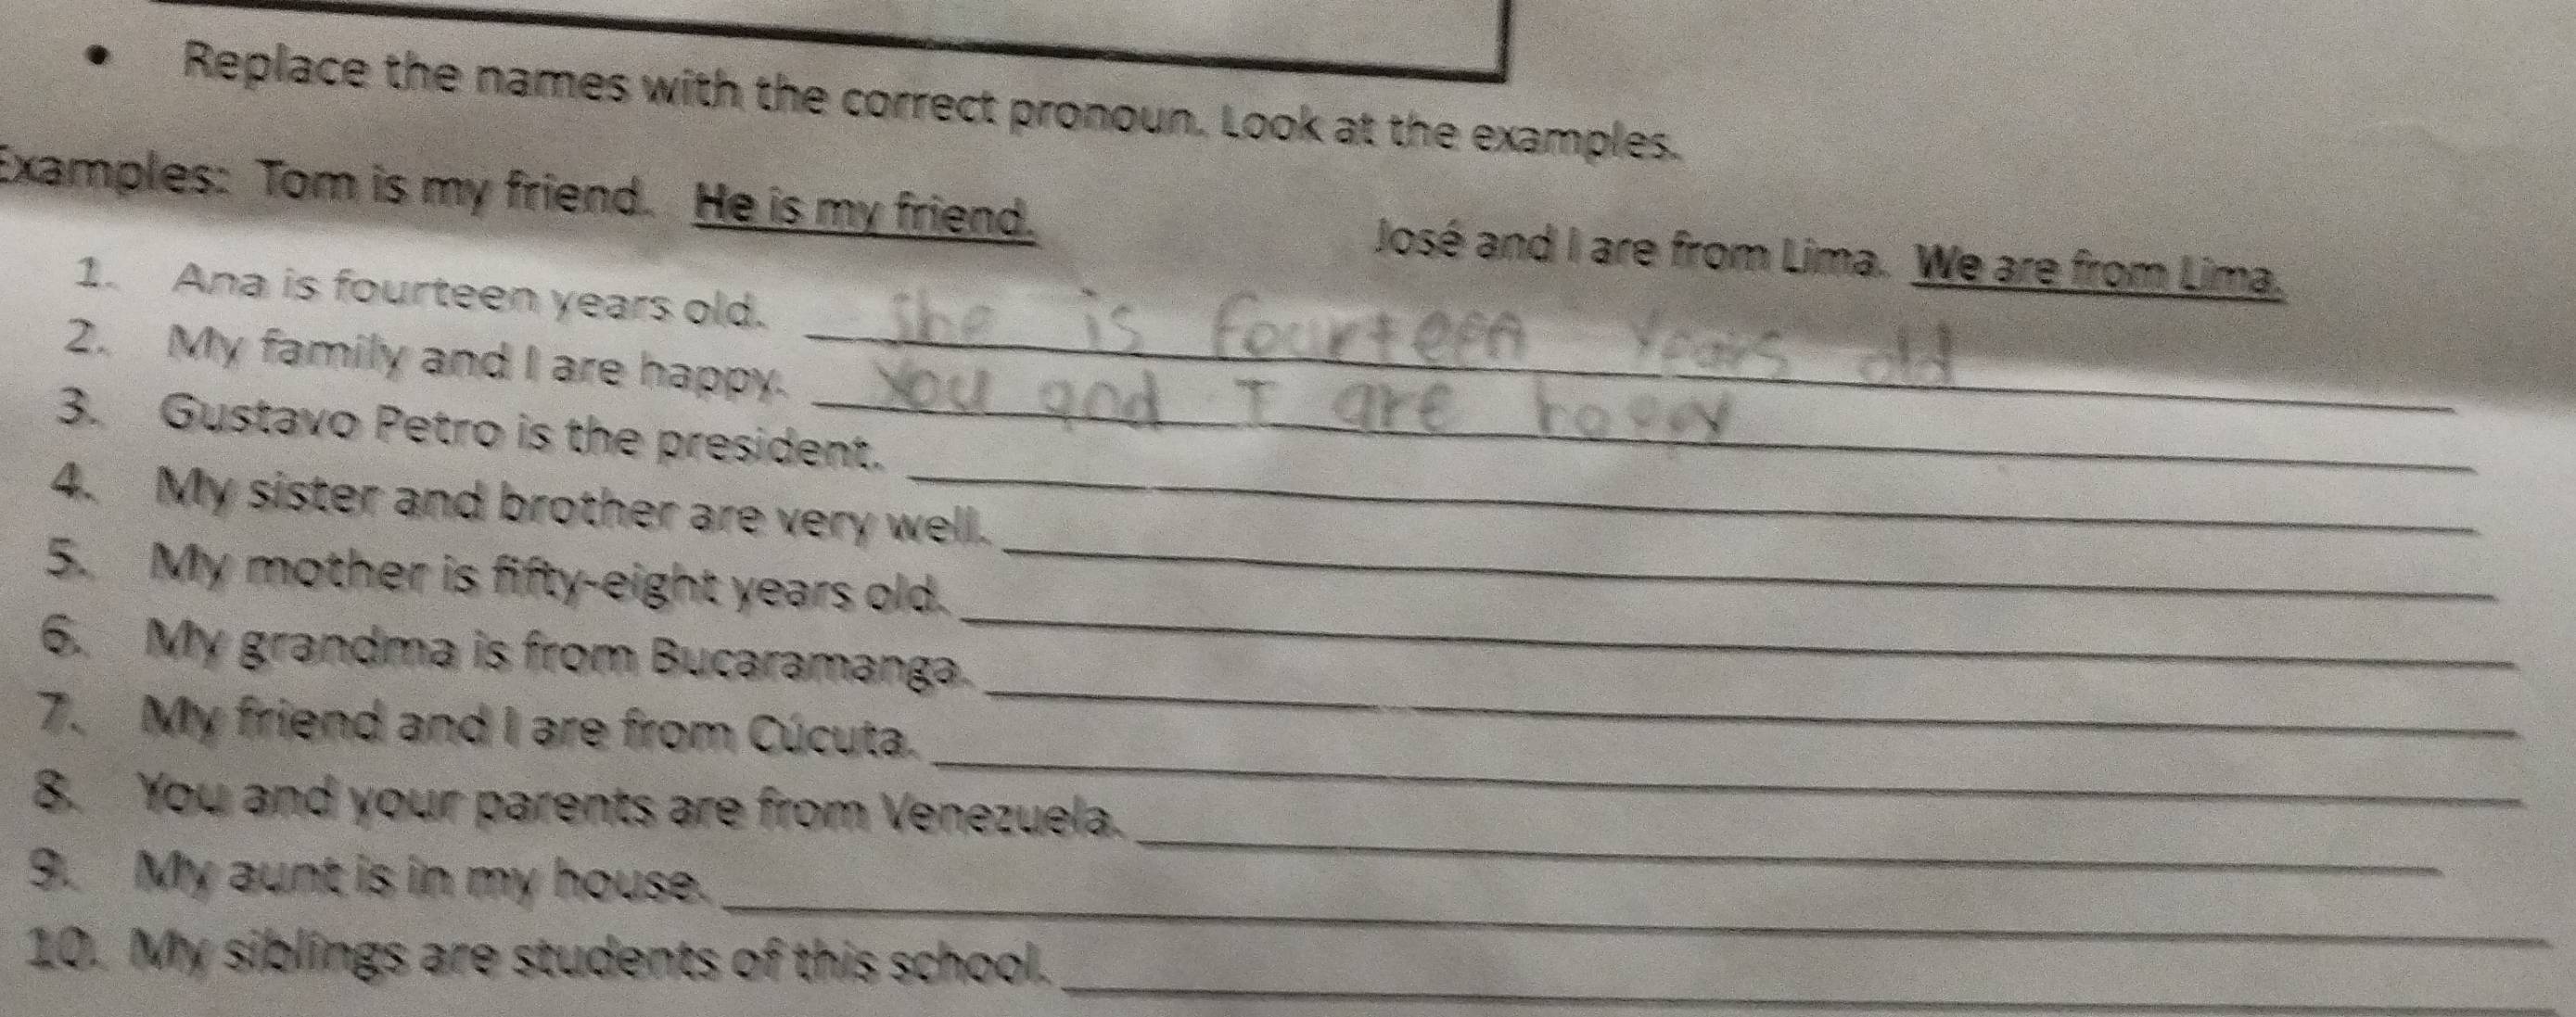 • Replace the names with the correct pronoun. Look at the examples.
Examples: Tom is my friend. He is my friend. José and I are from Lima. We are from Lima.
1. Ana is fourteen years old. She is fourteen years old
2. My family and I are happy. You and I are happy
3. Gustavo Petro is the president.
4. My sister and brother are very well.
5. My mother is fifty-eight years old.
6. My grandma is from Bucaramanga.
7. My friend and I are from Cúcuta.
8. You and your parents are from Venezuela.
9. My aunt is in my house.
10. My siblings are students of this school.